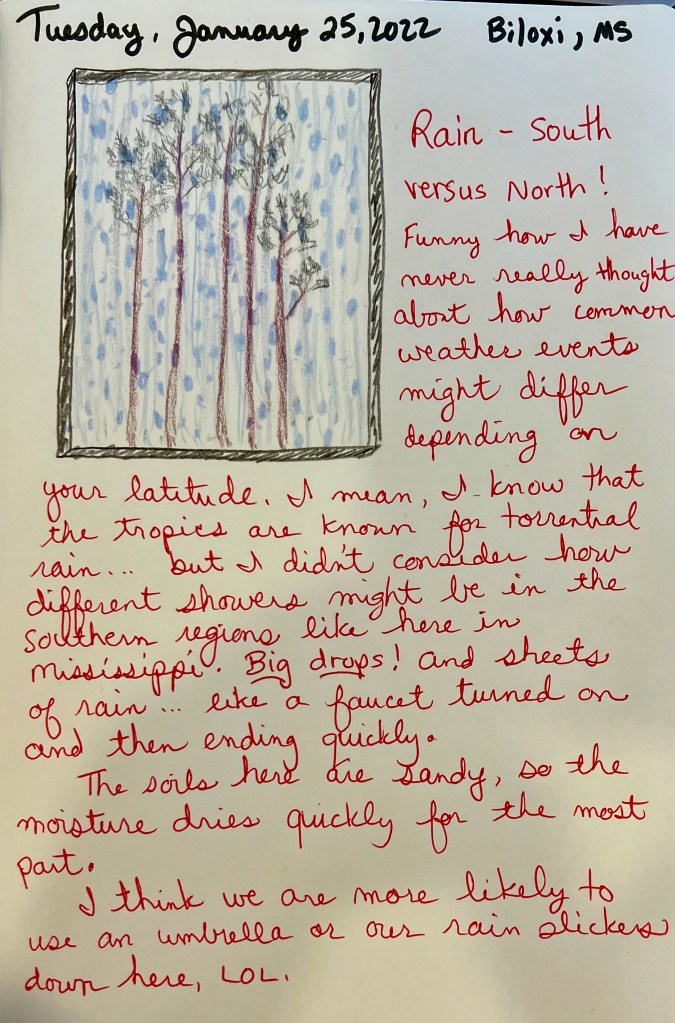 Tuesday, January 25, 2022 Biloxi, MS
Rain - South
versus North!
Funny how I have
never really thought
about how common
weather events
might differ
depending on
your latitude. I mean, I know that
the tropics are known for torrential
rain... but I didn't consider how
different showers might be in the
southern regions like here in
Mississippi. Big drops! and sheets
of rain... like a faucet turned on
and then ending quickly.
The soils here are sandy, so the
moisture dries quickly for the most
part.
I think we are more likely to
use an umbrella or our rain slickers
down here, LOL.